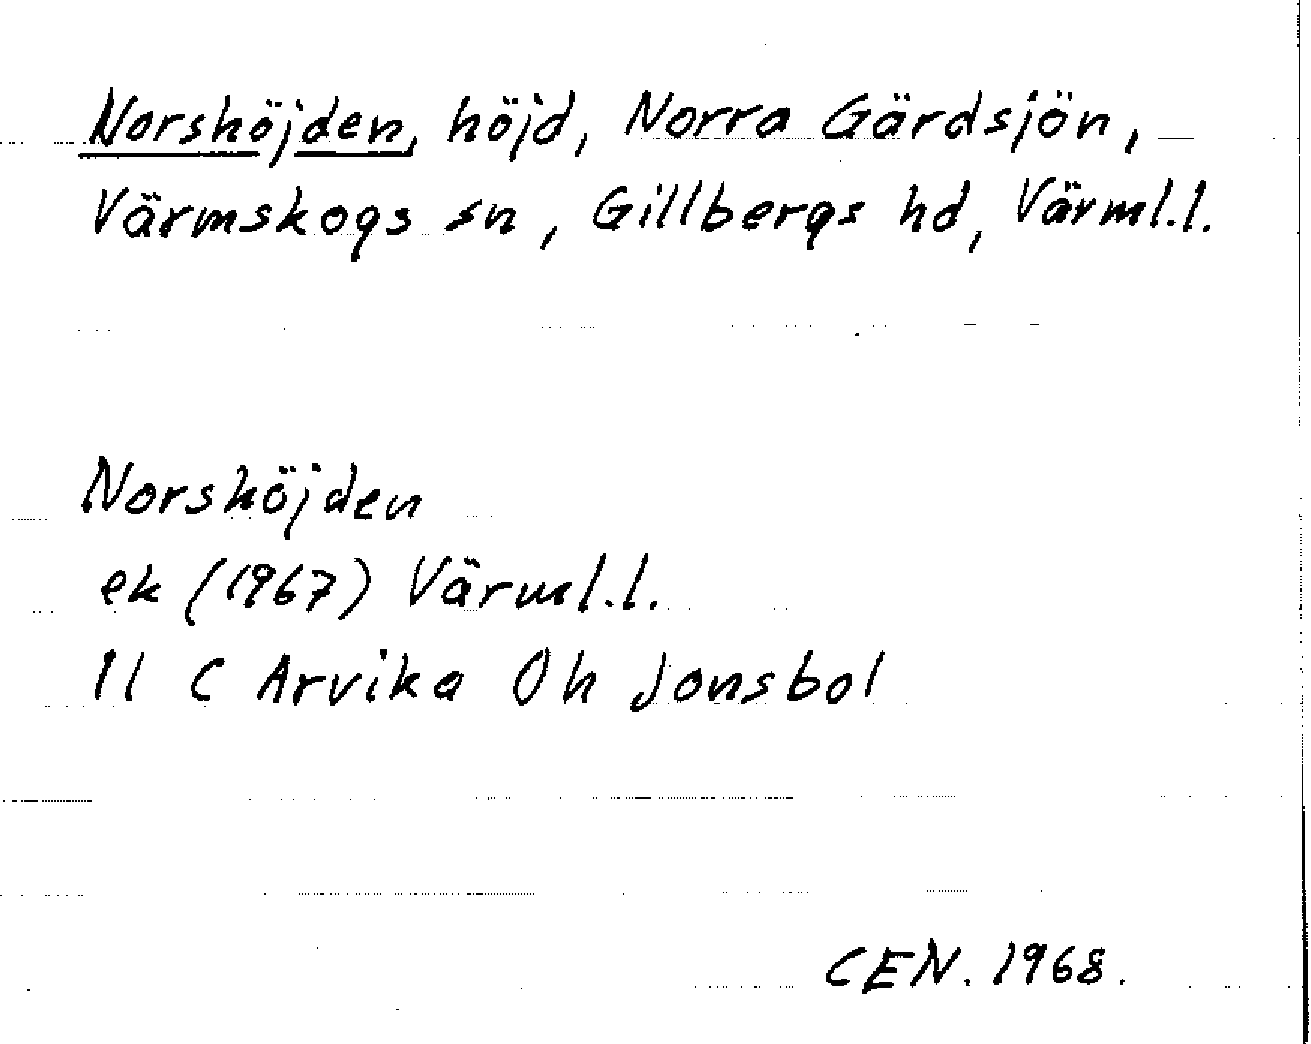 Norshöjden, höjd, Norra Gärdsjön,
Värmskogs sn, Gillbergs hd, Värml.l.
Norshöjden
ek (1967) Värml.l.
11 C Arvika 0h Jonsbol
CEN. 1968.